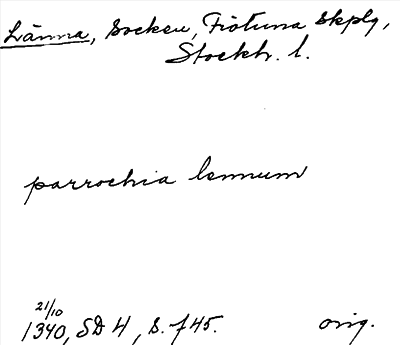 Länna, Socken, Frötuna Skplg,
Stockh. l.
parrochia lennum
21/10
1340, SD 4, s. 745.
orig.